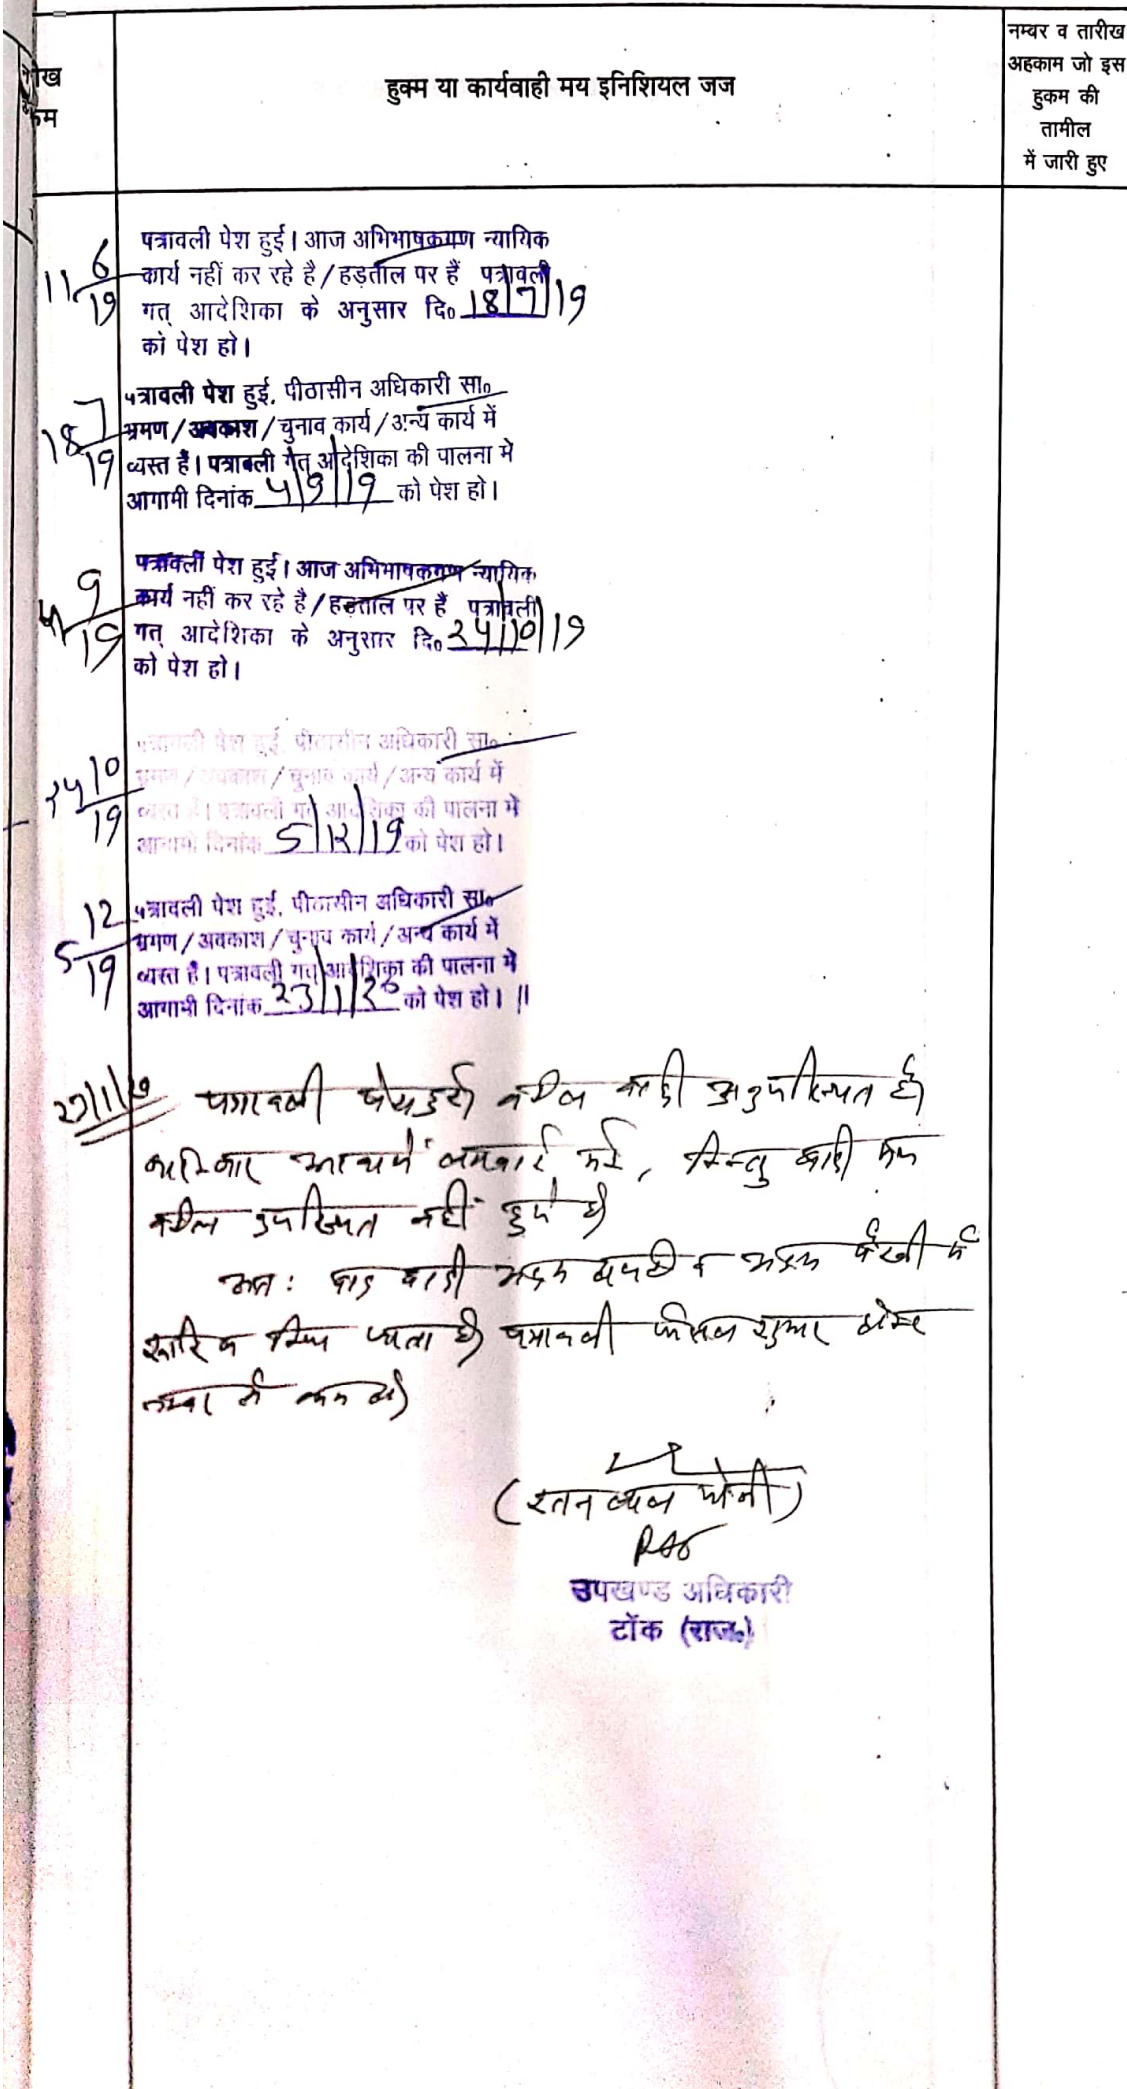 नम्बर व तारीख
अहकाम जो इस
हुकम की
तामील
में जारी हुए
हुक्म या कार्यवाही मय इनिशियल जज
11 6/19 पत्रावली पेश हुई। आज अभिभाषकगण न्यायिक
कार्य नहीं कर रहे है/हड़ताल पर हैं पत्रावली
गत् आदेशिका के अनुसार दि० 18/7/19
को पेश हो।
18 7/19 पत्रावली पेश हुई, पीठासीन अधिकारी सा०
भ्रमण/अवकाश/चुनाव कार्य/अन्य कार्य में
व्यस्त हैं। पत्रावली गत् आदेशिका की पालना मे
आगामी दिनांक 5/9/19 को पेश हो।
5 9/19 पत्रावली पेश हुई। आज अभिभाषकगण न्यायिक
कार्य नहीं कर रहे है/हड़ताल पर हैं पत्रावली
गत् आदेशिका के अनुसार दि० 24/10/19
को पेश हो।
24 10/19 पत्रावली पेश हुई, पीठासीन अधिकारी सा०
भ्रमण/अवकाश/चुनाव कार्य/अन्य कार्य में
व्यस्त हैं। पत्रावली गत् आदेशिका की पालना मे
आगामी दिनांक 5/12/19 को पेश हो।
5 12/19 पत्रावली पेश हुई, पीठासीन अधिकारी सा०
भ्रमण/अवकाश/चुनाव कार्य/अन्य कार्य में
व्यस्त हैं। पत्रावली गत् आदेशिका की पालना मे
आगामी दिनांक 23/1/20 को पेश हो।
पत्रावली पेश हुई। वकील वादी अनुपस्थित है।
बार-बार आवाजें लगवाई गई, किन्तु वादी
वकील उपस्थित नहीं हुये है।
अतः वाद वादी अदम व अदम पैरवी में
खारिज किया जाता है। पत्रावली फैसल शुमार होकर
नम्बर से कम हो।
(रतन लाल)
RAS
उपखण्ड अधिकारी
टोंक (राज०)